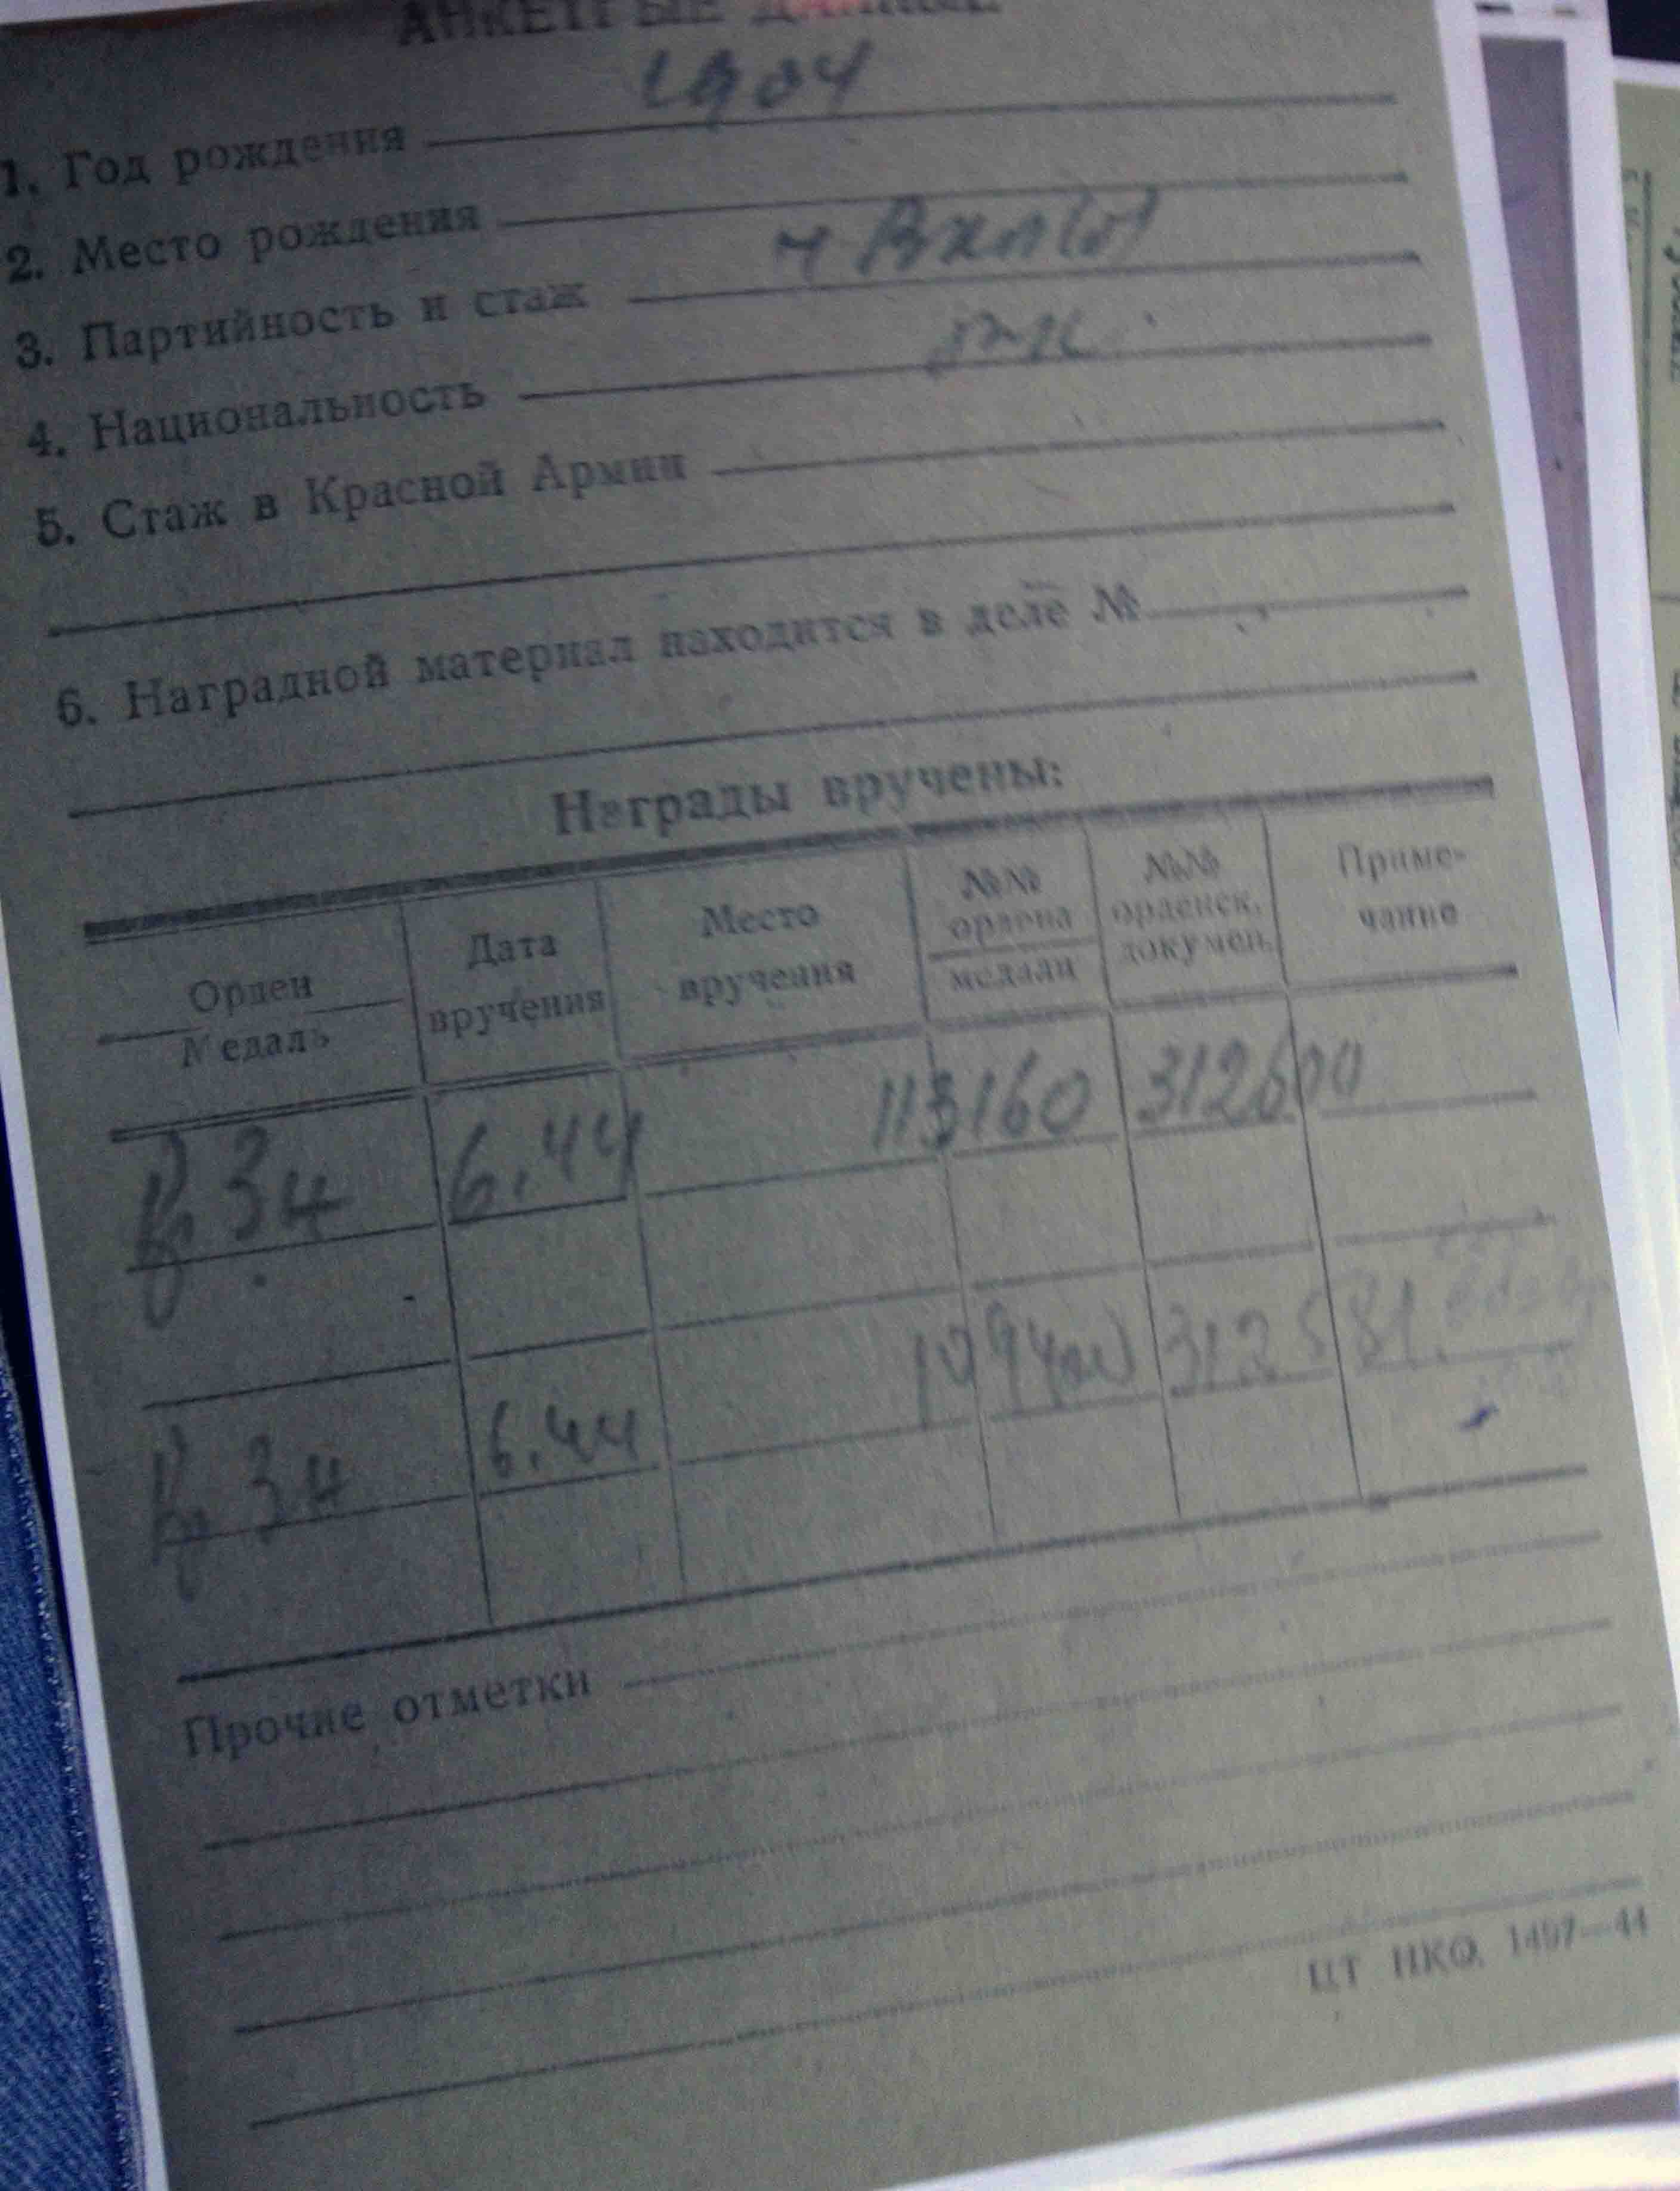 АНКЕТНЫЕ ДАННЫЕ
1. Год рождения 1904
2. Место рождения
3. Партийность и стаж ч ВКП(б)
4. Национальность
5. Стаж в Красной Армии
6. Наградной материал находится в деле №
Награды вручены:
Орден Медаль
Дата вручения
Место вручения
№№ ордена медали
№№ орденск. докумен.
Приме-чание
Кр Зн 6.44 113160 312600
Кр Зн 6.44 312581
Прочие отметки
ЦТ НКО. 1497—44